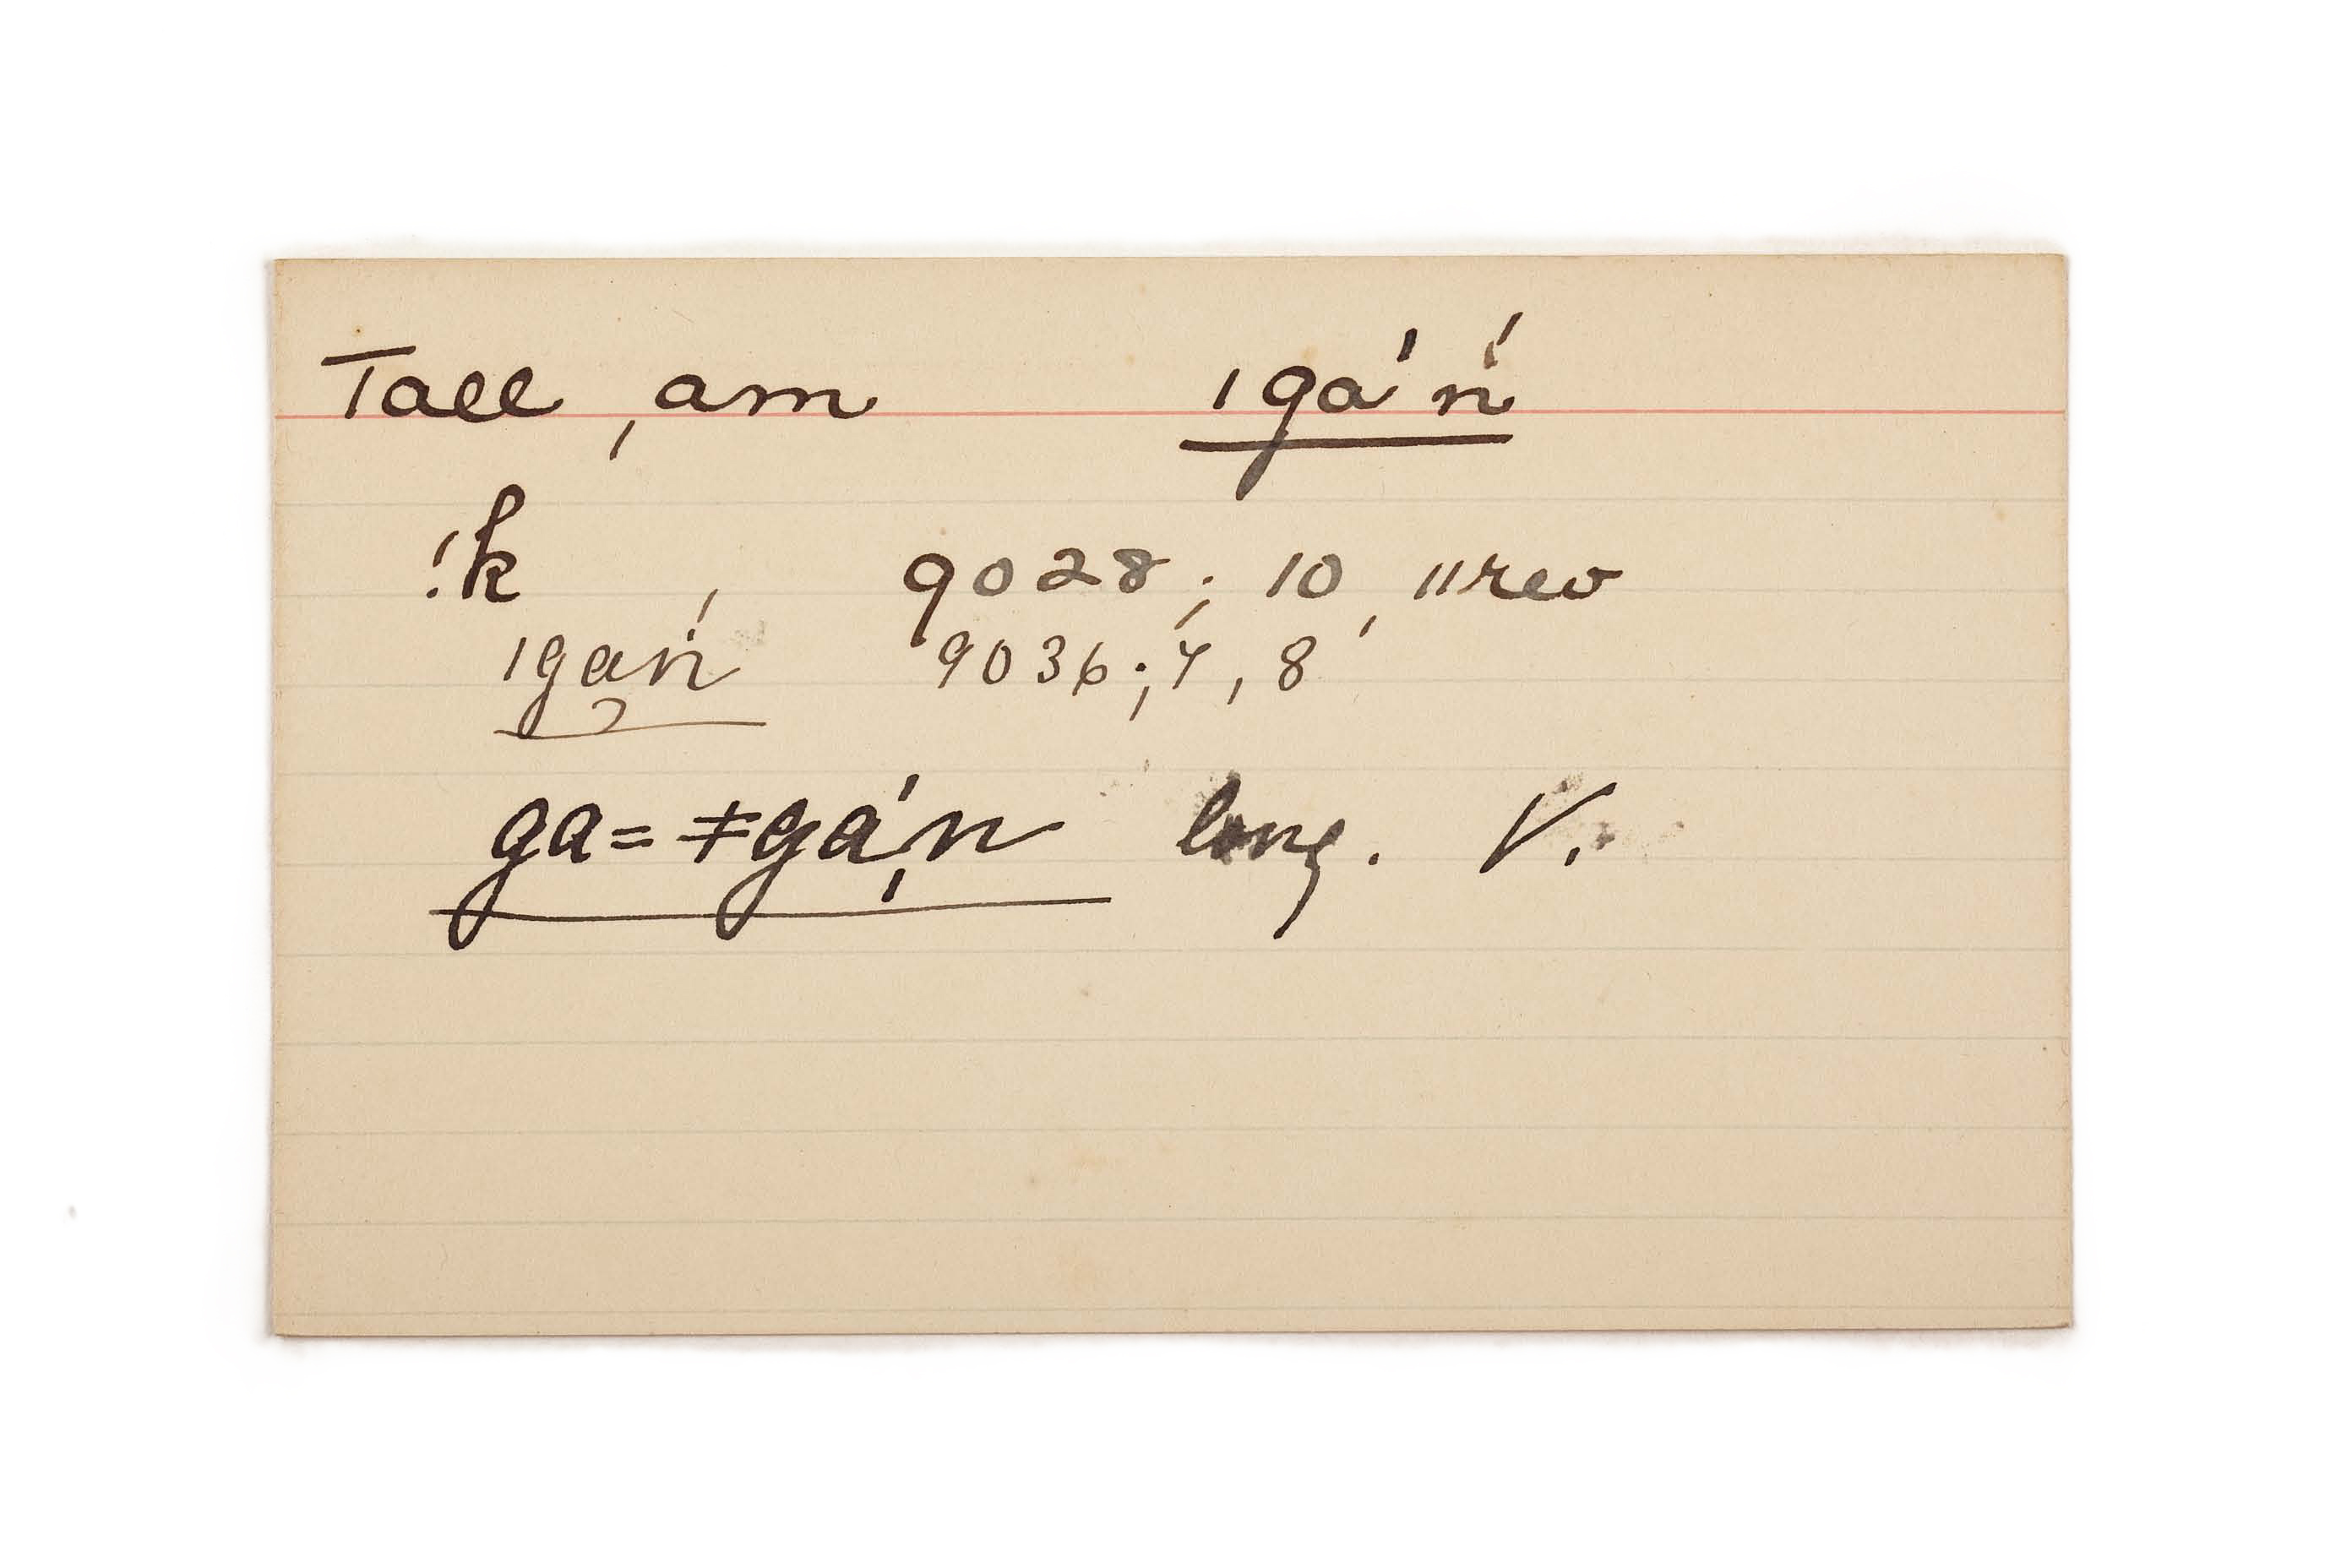 Tall, am ıgá'ń
!k 9028; 10, 11rev
ıgań 9036; 7, 8
ga=ǂgá'n long. V.